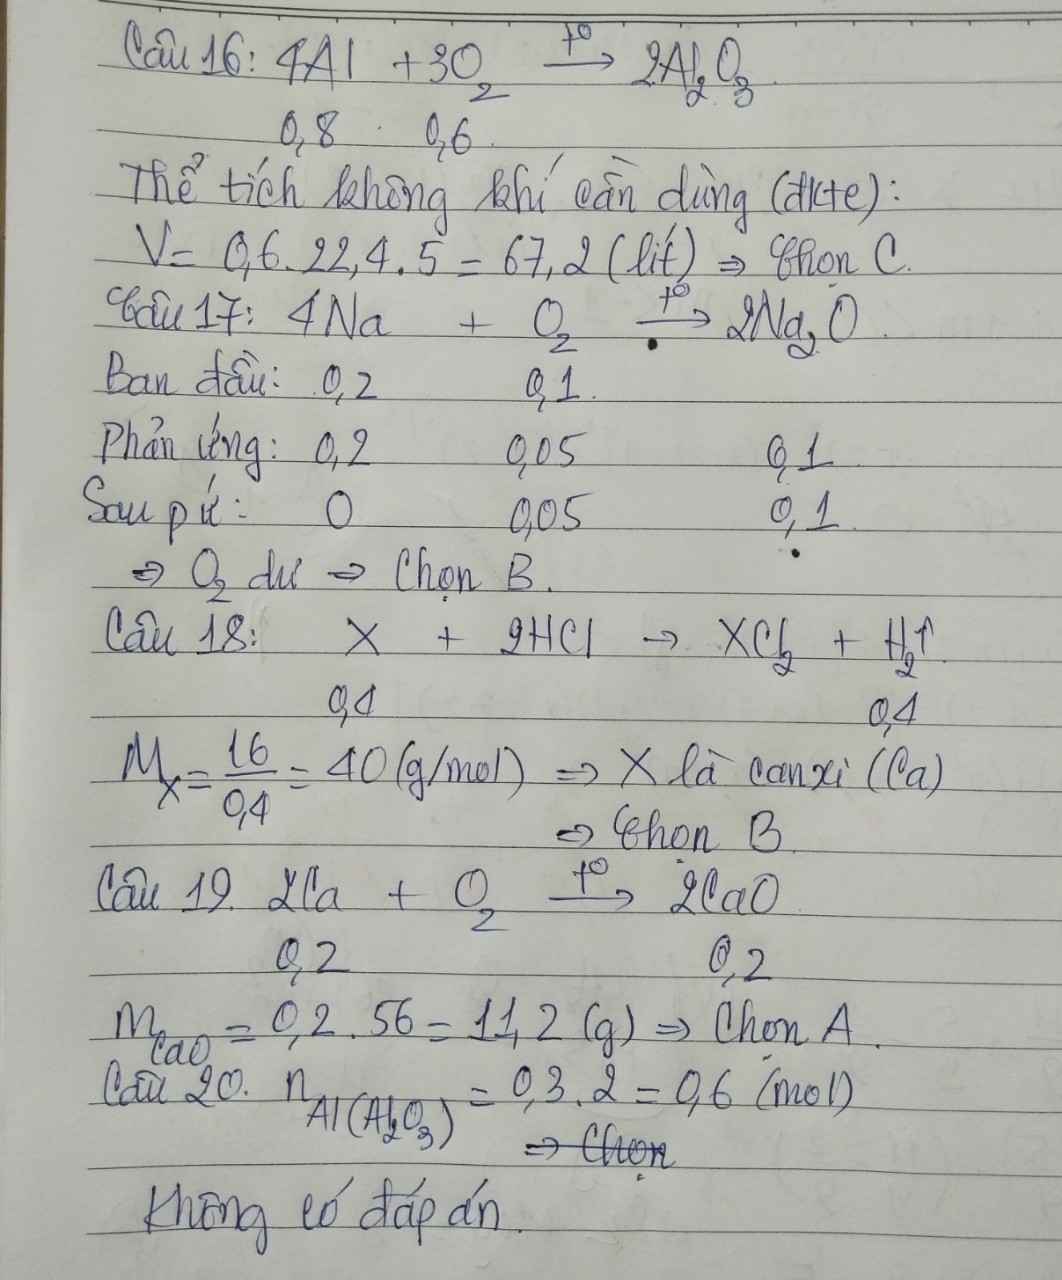 Câu 16: 4Al + 3O₂ t⁰→ 2Al₂O₃
0,8 0,6
Thể tích không khí cần dùng (đktc):
V = 0,6.22,4.5 = 67,2 (lít) ⇒ Chọn C.
Câu 17: 4Na + O₂ t⁰→ 2Na₂O
Ban đầu: 0,2 0,1
Phản ứng: 0,2 0,05 0,1
Sau pứ: 0 0,05 0,1
⇒ O₂ dư ⇒ Chọn B.
Câu 18: X + 2HCl → XCl₂ + H₂↑
0,4 0,4
Mₓ = 16/0,4 = 40 (g/mol) ⇒ X là canxi (Ca)
⇒ Chọn B
Câu 19. 2Ca + O₂ t⁰→ 2CaO
0,2 0,2
m CaO = 0,2.56 = 11,2 (g) ⇒ Chọn A.
Câu 20. n Al(Al₂O₃) = 0,3.2 = 0,6 (mol)
⇒ Chọn
Không có đáp án.